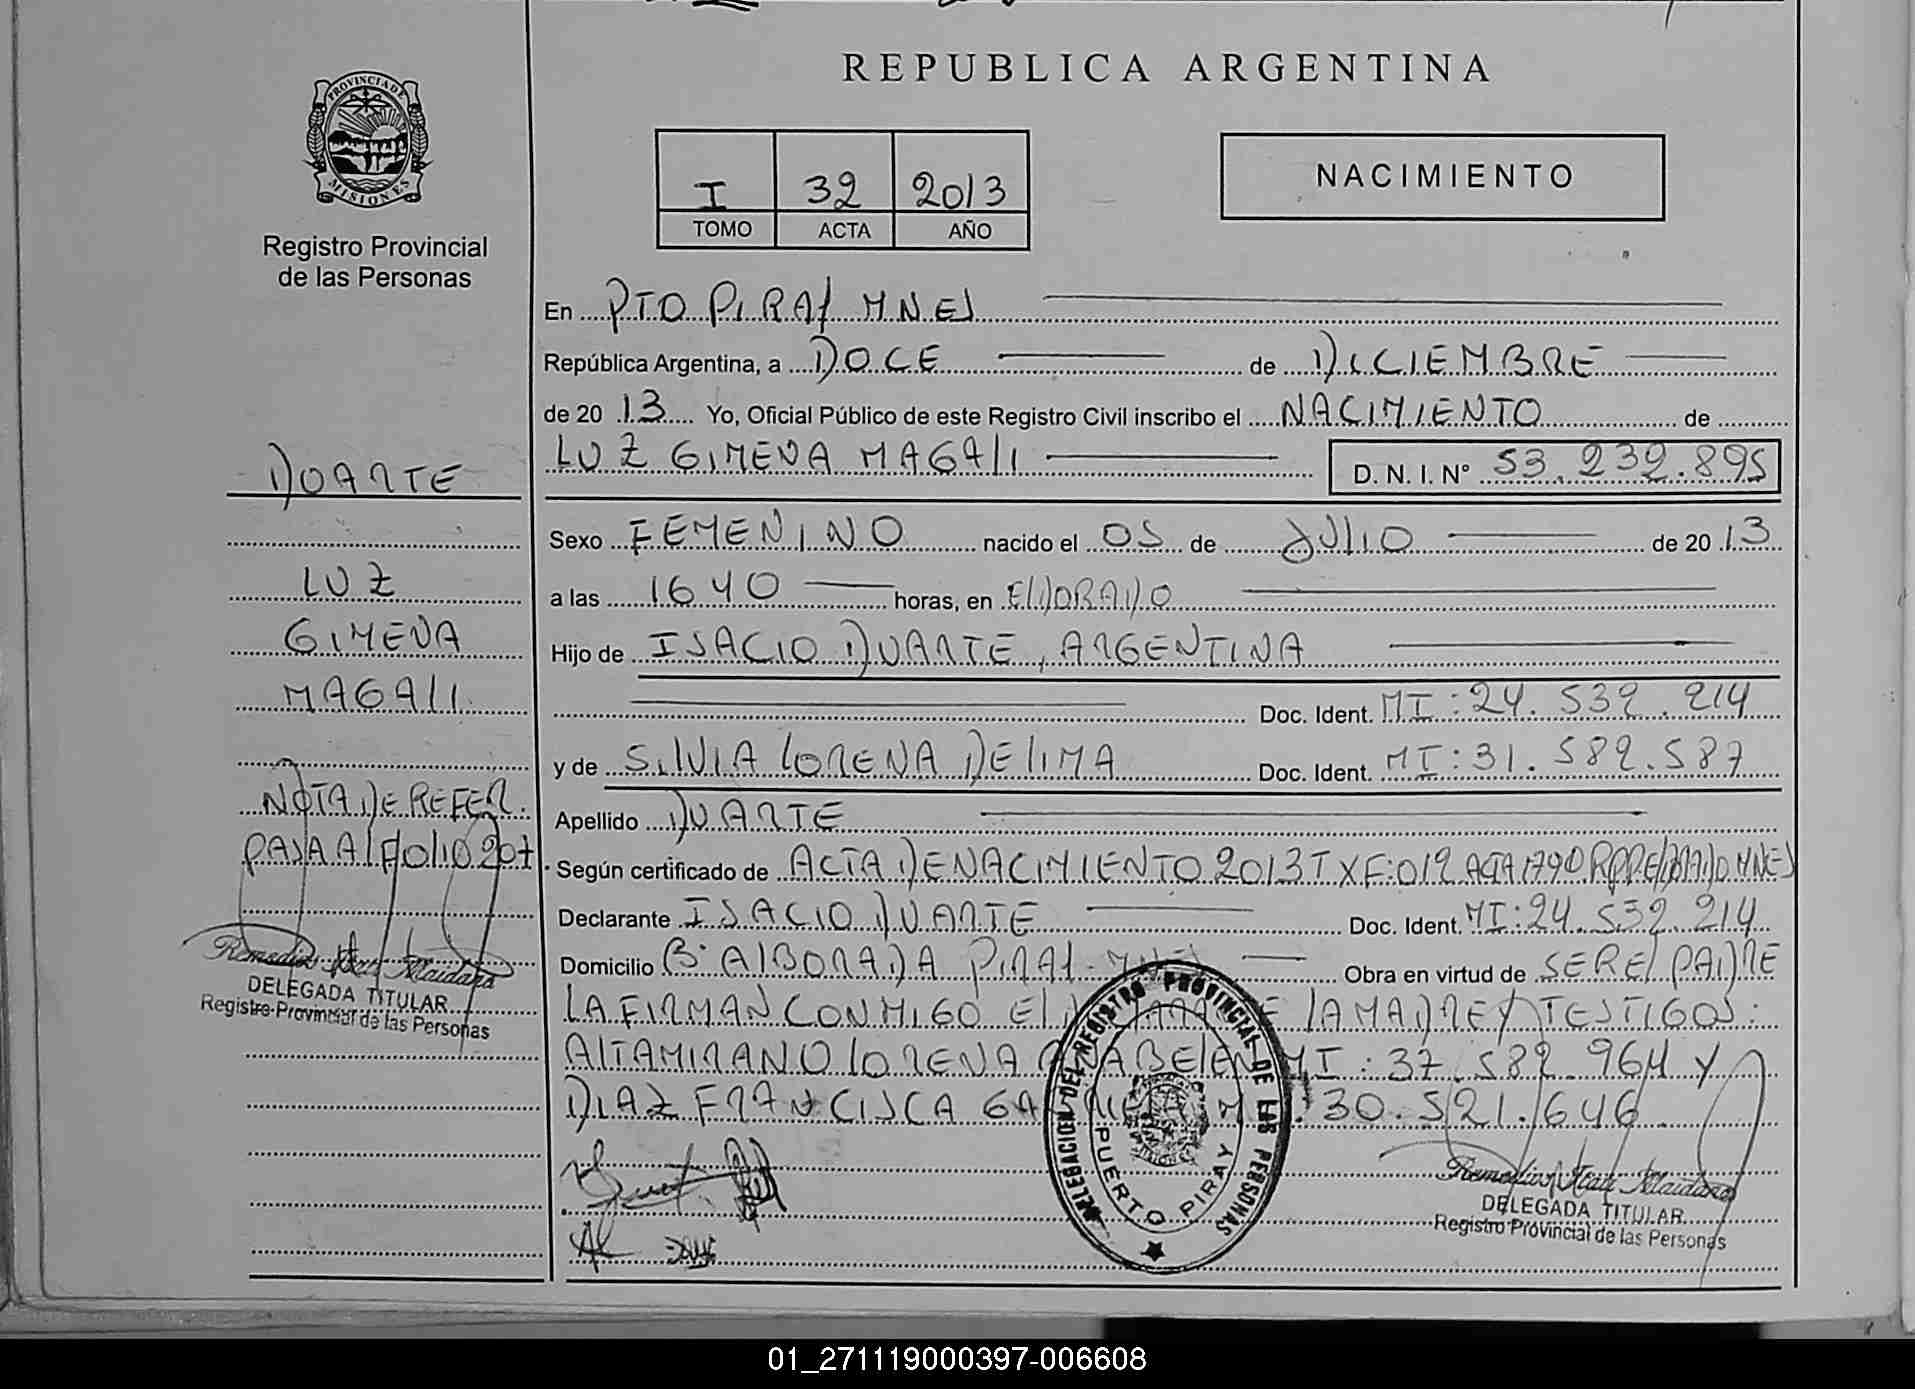 REPUBLICA ARGENTINA
PROVINCIA DE MISIONES
Registro Provincial
de las Personas
I 32 2013
TOMO ACTA AÑO
NACIMIENTO
En PTO PIRAY MNES
República Argentina, a DOCE de DICIEMBRE
de 20 13 Yo, Oficial Público de este Registro Civil inscribo el NACIMIENTO de
LUZ GIMENA MAGALI D. N. I. Nº 53.232.895
Sexo FEMENINO nacido el 05 de JULIO de 20 13
a las 1640 horas, en ELDORADO
Hijo de ISACIO DUARTE, ARGENTINA
Doc. Ident. MI: 24.532.214
y de SILVIA LORENA DELIMA Doc. Ident. MI: 31.582.587
Apellido DUARTE
Según certificado de ACTA DE NACIMIENTO 2013 T X F: 012 ACTA 1790 RPP ELDORADO MNES
Declarante ISACIO DUARTE Doc. Ident. MI: 24.532.214
Domicilio Bº ALBORADA PIRAY-MNES Obra en virtud de SER EL PADRE
LA FIRMAN CONMIGO EL LA MADRE Y TESTIGOS:
ALTAMIRANO LORENA ANABELEN MI: 37.582.964 Y
DIAZ FRANCISCA 30.521.646
DUARTE
LUZ
GIMENA
MAGALI
NOTA DE REFER.
PASA AL FOLIO 207
Remedios Maidana
DELEGADA TITULAR
Registro Provincial de las Personas
DELEGACION DEL REGISTRO PROVINCIAL DE LAS PERSONAS
PUERTO PIRAY
Remedios Maidana
DELEGADA TITULAR
Registro Provincial de las Personas
01_271119000397-006608